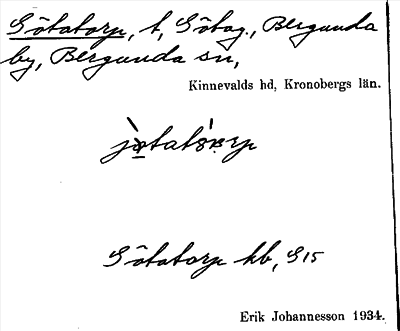 Götatorp, t, Götag., Bergunda
by, Bergunda sn,
Kinnevalds hd, Kronobergs län.
Götatorp kb, G15
Erik Johannesson 1934.